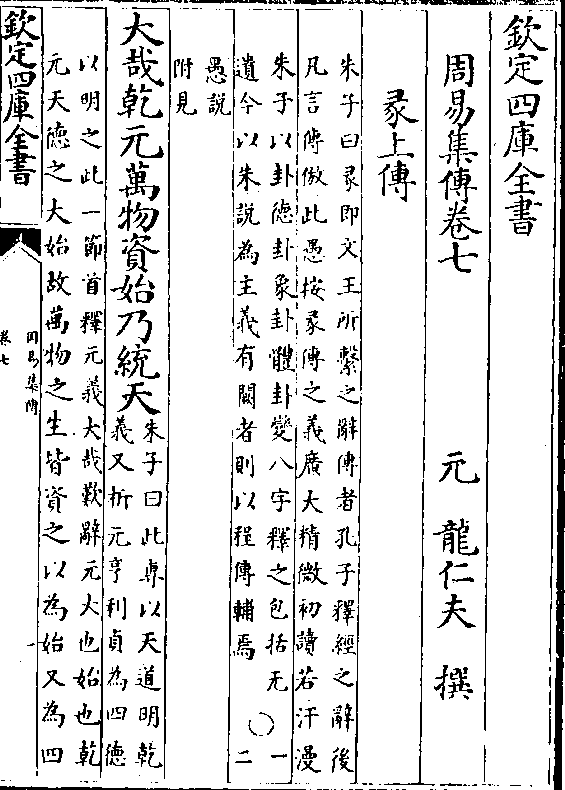 欽定四庫全書
周易集傳卷七
元 龍仁夫 撰
彖上傳
朱子曰彖即文王所繫之辭傳者孔子釋經之辭後
凡言傳倣此愚按彖傳之義廣大精微初讀若汗漫
朱子以卦德卦象卦體卦變八字釋之包括无
遺今以朱說為主義有闕者則以程傳輔焉
○一二
愚說
附見
大哉乾元萬物資始乃統天
朱子曰此專以天道明乾
義又析元亨利貞為四德
以明之此一節首釋元義大哉歎辭元大也始也乾
元天德之大始故萬物之生皆資之以為始又為四
欽定四庫全書
周易集傳
卷七
一